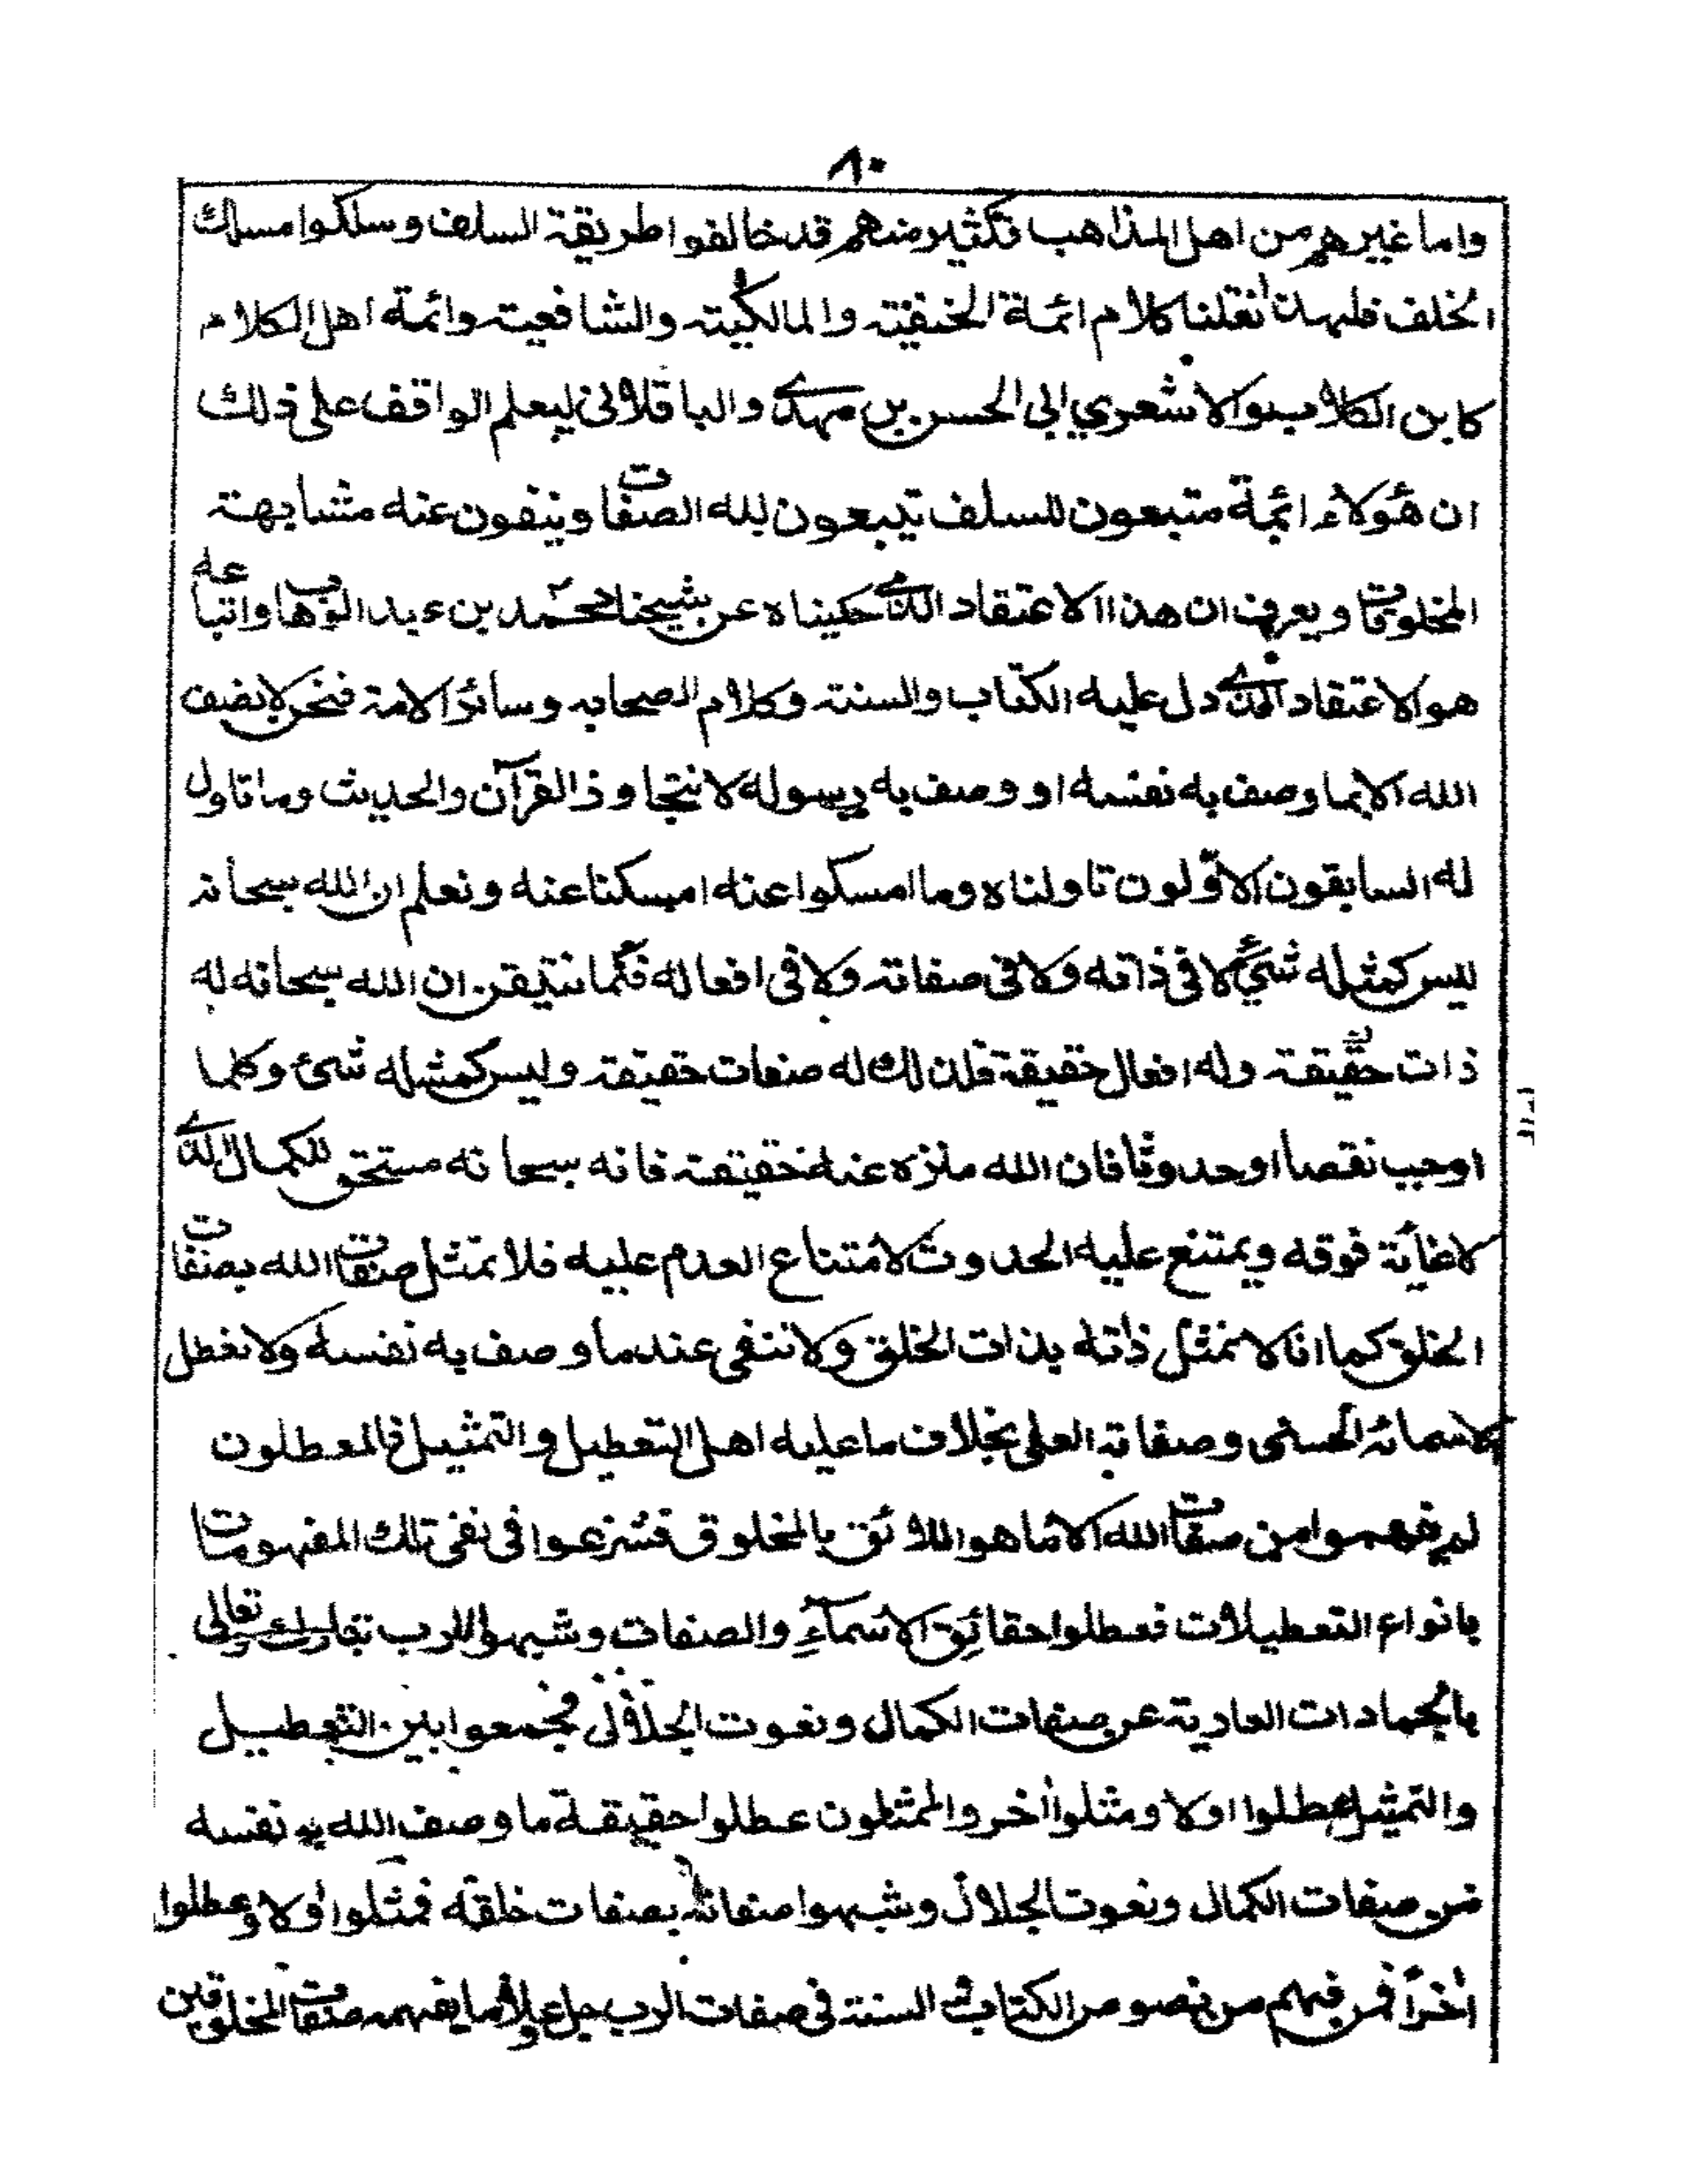 ٨٠
واما غيرهم من اهل المذاهب فكثير منهم قد خالفوا طريقة السلف وسلكوا مسلك
الخلف فلهذا نقلنا كلام ائمة الحنفية والمالكية والشافعية وائمة اهل الكلام
كابن الكلاب والاشعري ابي الحسن بن مهدي والباقلاني ليعلم الواقف على ذلك
ان هؤلاء ائمة متبعون للسلف يتبعون لله الصفات وينفون عنه مشابهة
المخلوقات ويعرف ان هذا الاعتقاد الذي حكيناه عن شيخنا محمد بن عبد الوهاب واتباعه
هو الاعتقاد الذي دل عليه الكتاب والسنة وكلام الصحابه وسائر الامة فنحن لا نصف
الله الا بما وصف به نفسه او وصف به رسوله لا نتجاوز القرآن والحديث وما تاول
له السابقون الاولون تاولناه وما امسكوا عنه امسكنا عنه ونعلم ان الله سبحانه
ليس كمثله شيء لا في ذاته ولا في صفاته ولا في افعاله فكما نتيقن ان الله سبحانه له
ذات حقيقة وله افعال حقيقة فكذلك له صفات حقيقة وليس كمثله شئ وكلما
اوجب نقصا او حدوثا فان الله منزه عنه حقيقة فانه سبحانه مستحق للكمال الذي
لا غاية فوقه ويمتنع عليه الحدوث لامتناع العدم عليه فلا نمثل صفات الله بصفات
الخلق كما انا لا نمثل ذاته بذات الخلق ولا ننفى عنه ما وصف به نفسه ولا نعطل
لاسمائه الحسنى وصفاته العلى بخلاف ما عليه اهل التعطيل والتمثيل فالمعطلون
لم يفهموا من صفات الله الا ما هو اللائق بالمخلوق فشرعوا في نفي تلك المفهومات
بانواع التعطيلات فعطلوا حقائق الاسماء والصفات وشبهوا الرب تبارك وتعالى
بالجمادات العارية عن صفات الكمال ونعوت الجلال فجمعوا بين التعطيل
والتمثيل عطلوا اولا ومثلوا اخر والممثلون عطلوا حقيقة ما وصف الله به نفسه
من صفات الكمال ونعوت الجلال وشبهوا صفاته بصفات خلقه فمثلوا اولا وعطلوا
اخراً فمن فهم من نصوص الكتاب والسنة في صفات الرب جل وعلا ما يفهمه من صفات المخلوقين